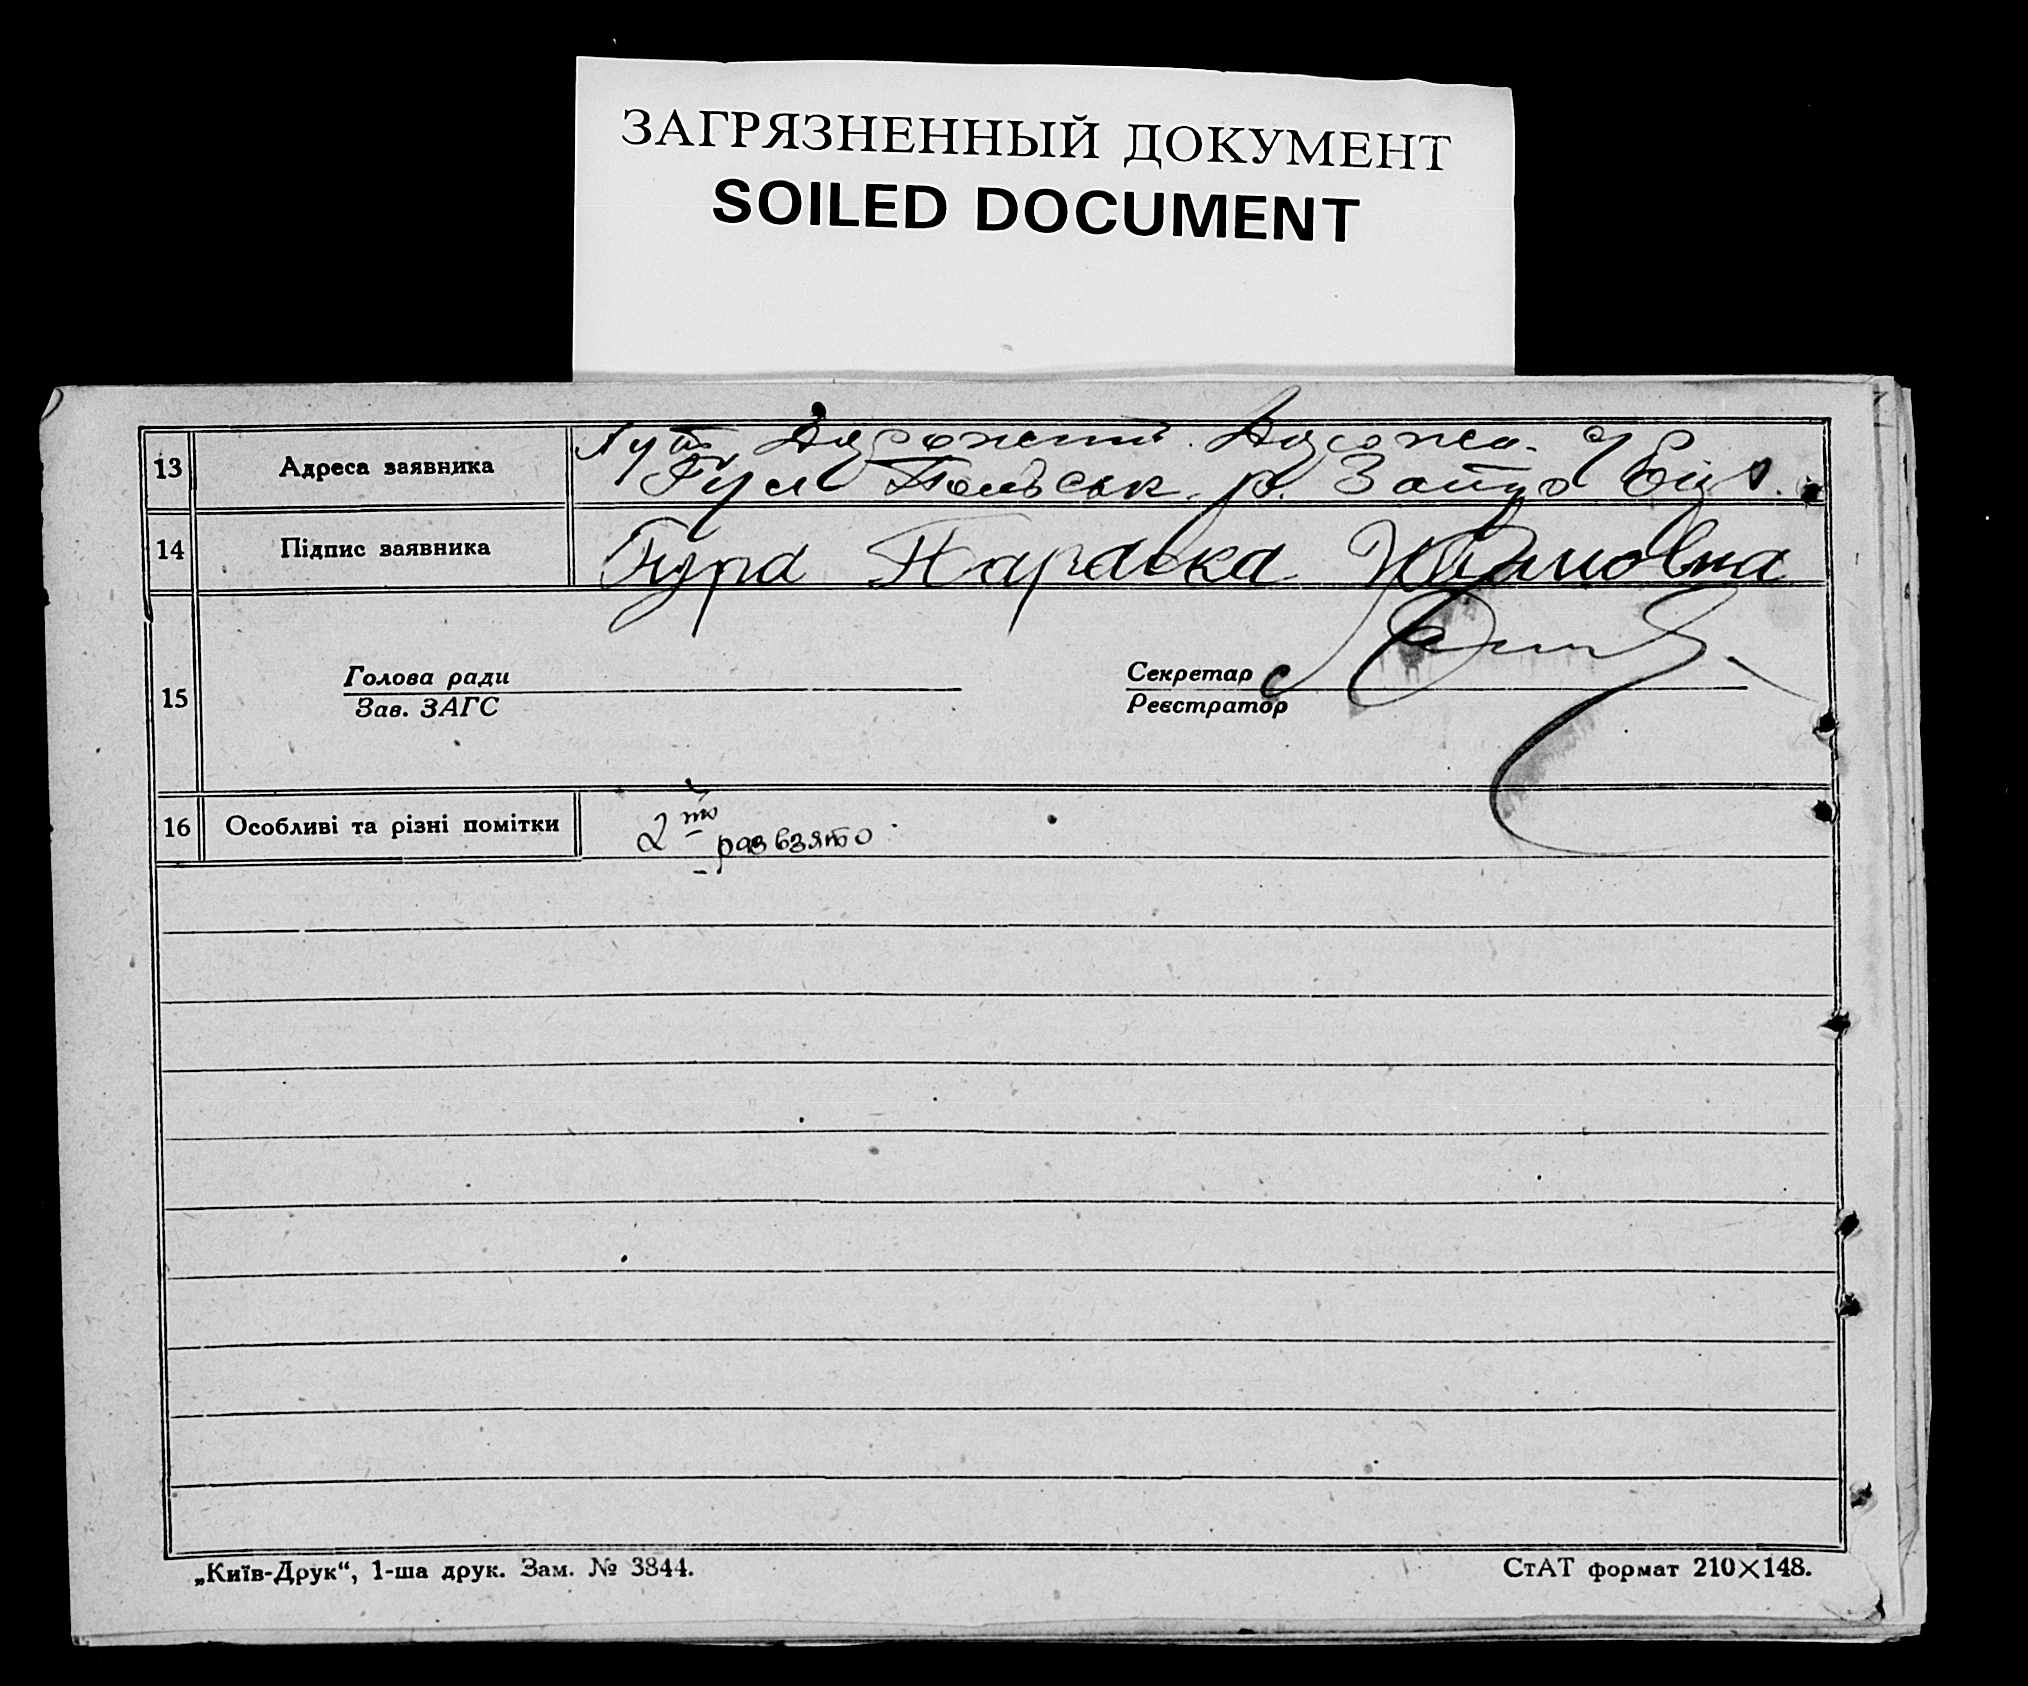 ЗАГРЯЗНЕННЫЙ ДОКУМЕНТ
SOILED DOCUMENT
13 Адреса заявника
14 Підпис заявника Гура Параска Ивановна
15 Голова ради Секретар
Зав. ЗАГС Реєстратор
16 Особливі та різні помітки 2й раз взято
„Київ-Друк“, 1-ша друк. Зам. № 3844. СтАТ формат 210×148.